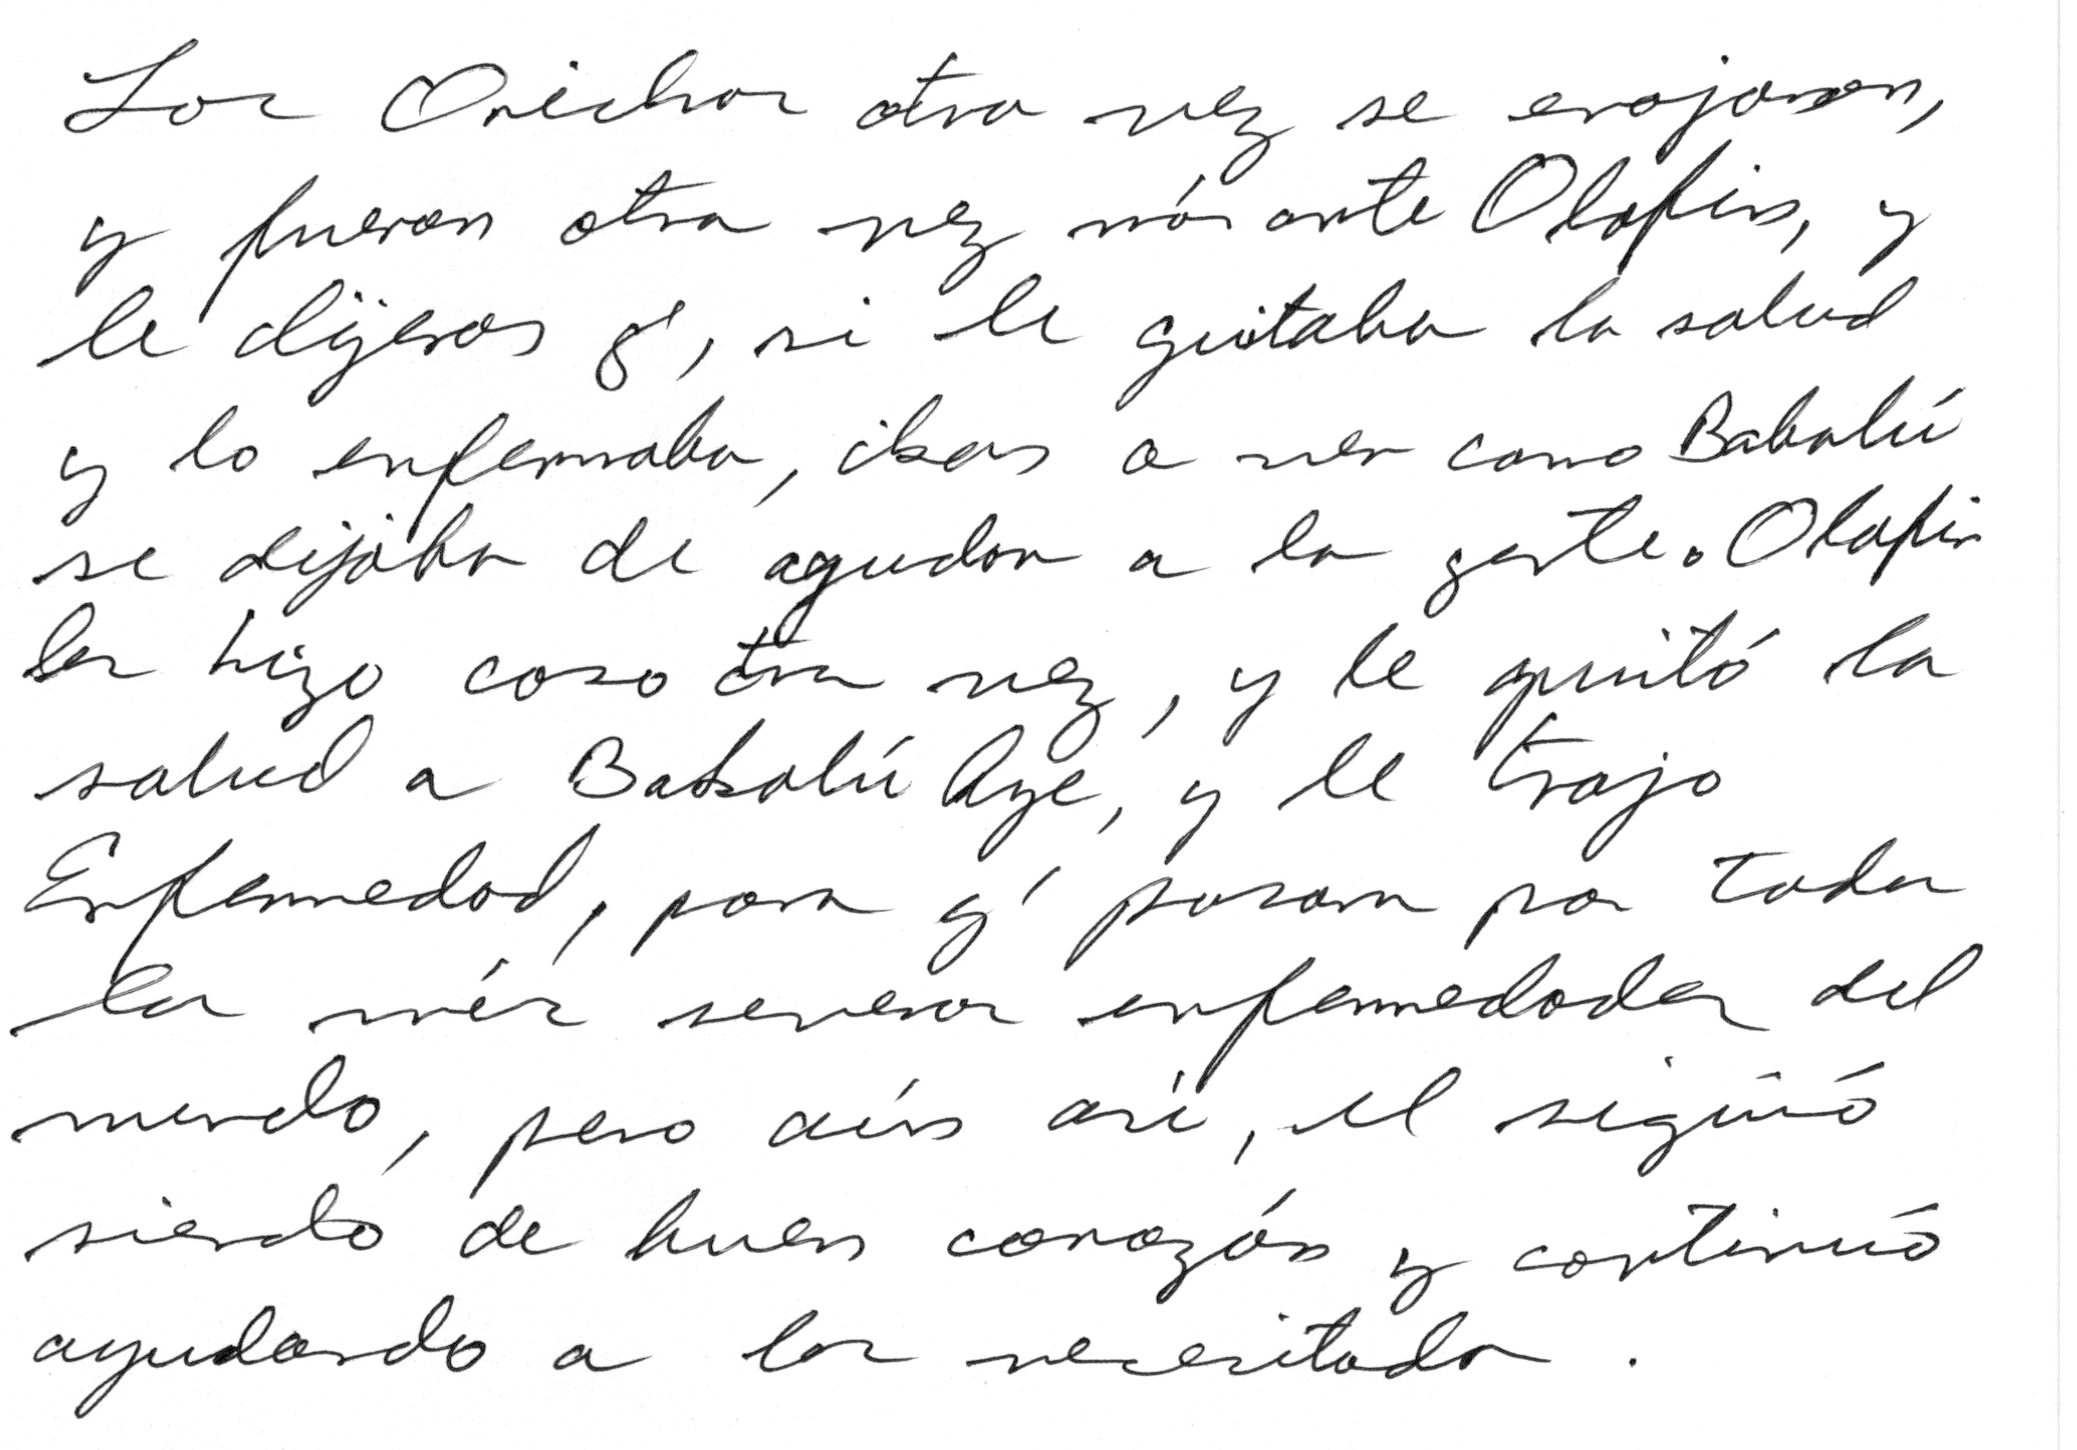 Los Orichas otra vez se enojaron,
y fueron otra vez más ante Olofin, y
le dijeron q', si le quitaba la salud
y lo enfermaba, iban a ver como Babalú
se dijaba de ayudar a la gente. Olofin
les hizo caso otra vez, y le quitó la
salud a Babalú Aye, y le trajo
Enfermedad, para q' pasara por todas
las más severas enfermedades del
mundo, pero aún así, el siguió
siendo de buen corazón y continuó
ayudando a los necesitados.